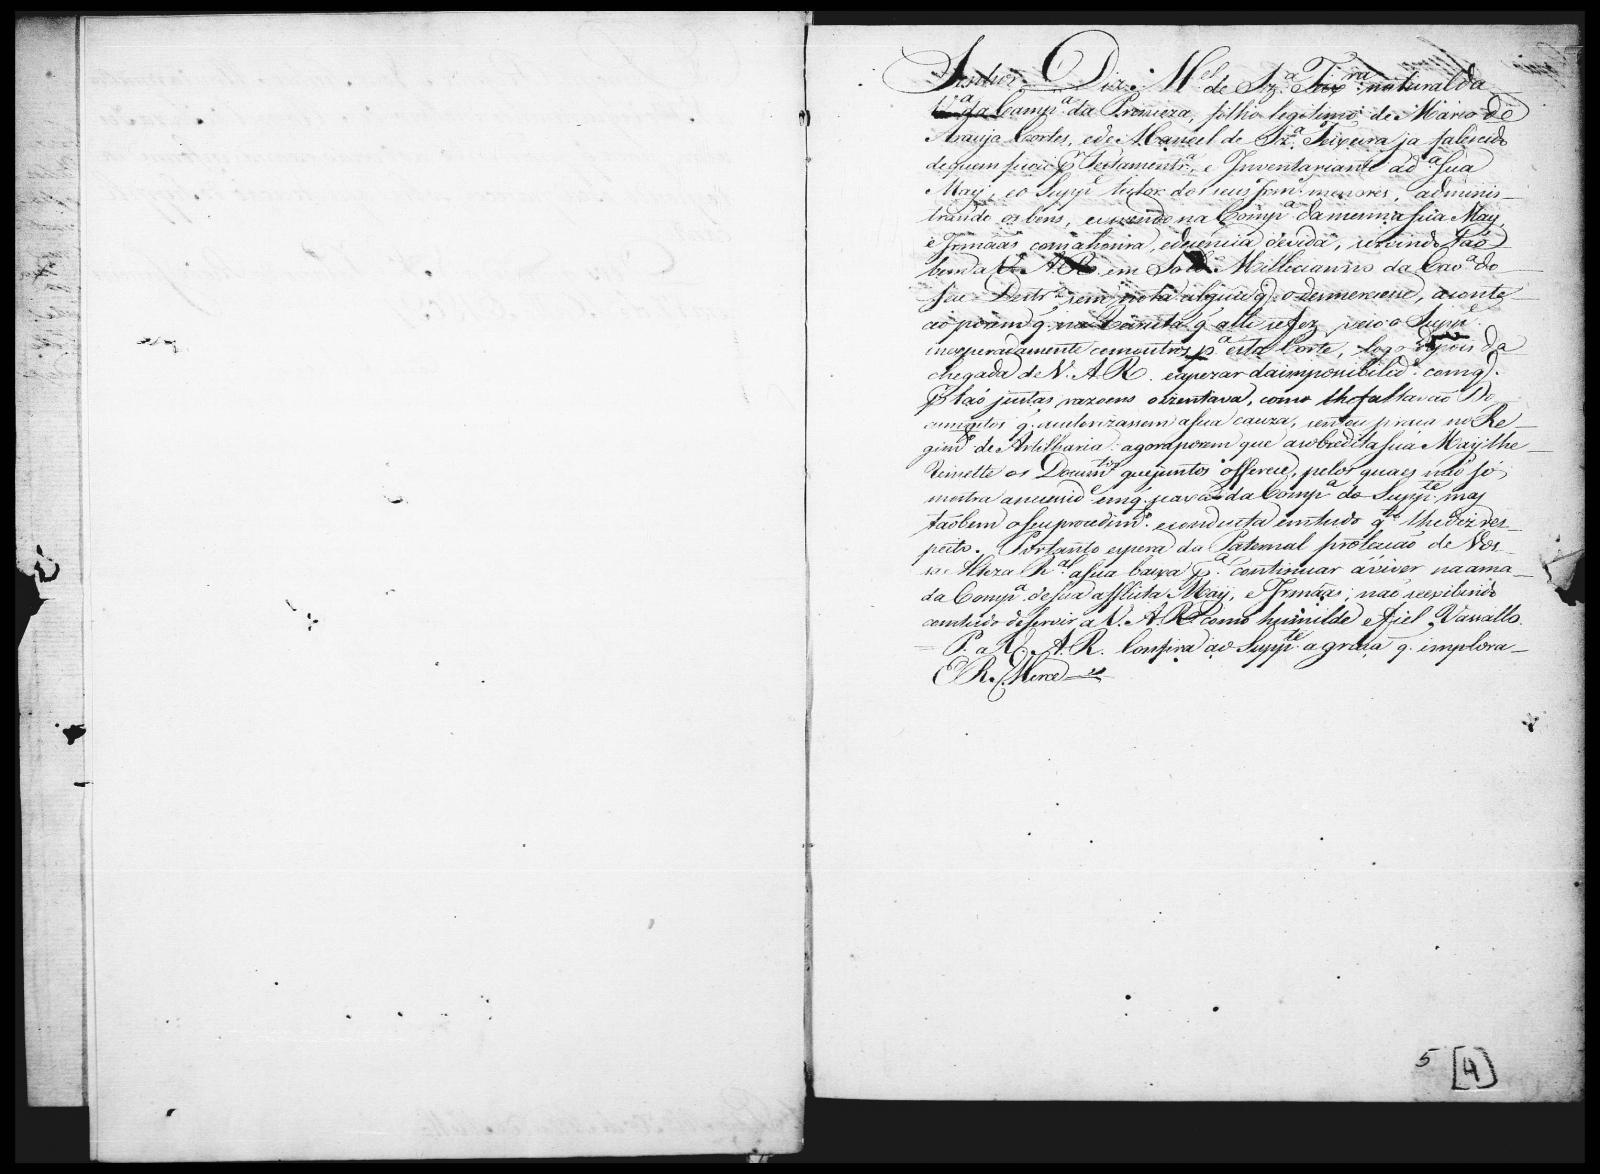 Senhor Diz M.el de Sz.a Teix.ra natural da
V.a da Camp.a da Princeza, filho legitimo de Maria de
Araujo Cortes, e de Manoel de Sz.a Teixeira ja falescido
de quem ficou p. Testament.ra, e Inventariante a d.a sua
May, e o Supp.e tutor dos seus Irm. menores, adminis-
trando os bens, e vivendo na Comp.a da mesma sua May,
e Irmãas com a honra, e decencia devida, servindo tão
bem a V. A. R. em Sold. Millicianno da Cav.a do
seu Destr.o sem nota alguã q. o desmerecese, aconte-
ceo porem q. na q. alli se fez, veio o Supp.e
inesperadamente com outros p.a esta Corte, logo depois da
chegada de V. A. R. e apezar da impossibilid.e com q.
p. tão justas razoens o izentava, como lhe faltavão Do-
cumentos q. autorizassem a sua cauza, sentou praça no Re-
gim.to de Artelharia: agora porem que a sobredita sua May lhe
remette os Docum.tos que juntos offerece, pelos quaes não só
mostra a necessid.e em q. da Comp.a do Supp.te mas
tãobem o seu procedim.to e conducta em tudo q.to lhe diz res-
peito. Portanto espera da Paternal proteccão de Vos-
sa Alteza R.al a sua baixa p.a continuar a viver na ama-
da Comp.a de sua afflita May, e Irmãas; não
comtudo de servir a V. A. R. como humilde e fiel Vassallo.
P. a V. A. R. Confira ao Supp.te a graça q. implora-
E R. Merce
5 [4]